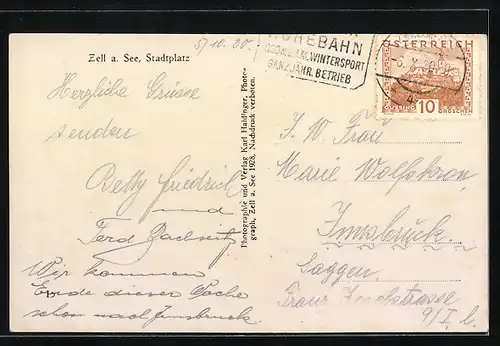 Zell a. See, Stadtplatz
5/10.30.
Herzliche Grüsse
senden
Betty Friedrich
und
Ferd.
Wir kommen
Ende dieser Woche
schon nach Innsbruck.
Photographie und Verlag Karl Haidinger, Photo-
graph, Zell a. See 1928, Nachdruck verboten.
HÖHEBAHN
WINTERSPORT
GANZJÄHR. BETRIEB
ÖSTERREICH
10
GROSCHEN
I. W. Frau
Marie Wolfskron,
Innsbruck.
Saggen.
Franz Fischstrasse
9/I. h.